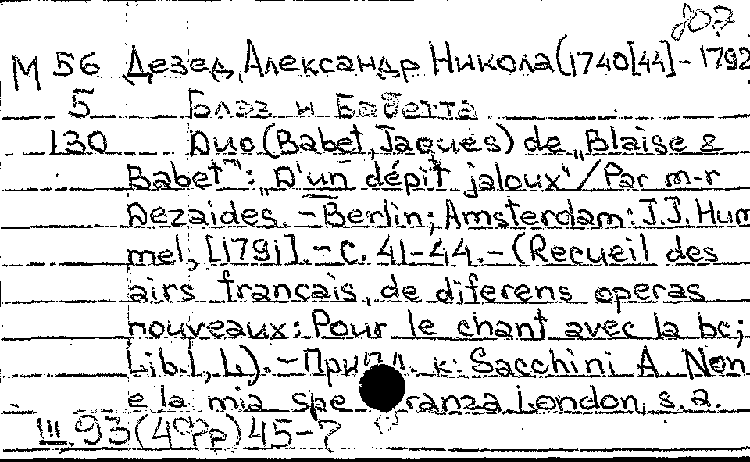 807
М 56 Дезед, Александр Никола (1740[44] - 1792
5 Блаз и Бабетта
130 Duo (Babet, Jaques) de „Blaise &
Babet": „D'un dépit jaloux"/Par m-r
Dezaides. - Berlin; Amsterdam: J.J. Hum
mel, [1791]. - С. 41-44. - (Recueil des
airs francais, de diferens operas
nouveaux: Pour le chant avec la bc;
Lib. I, L). - Припл. к: Sacchini A. Non
e la mia spe ranza London, s. a.
III 93 45-7